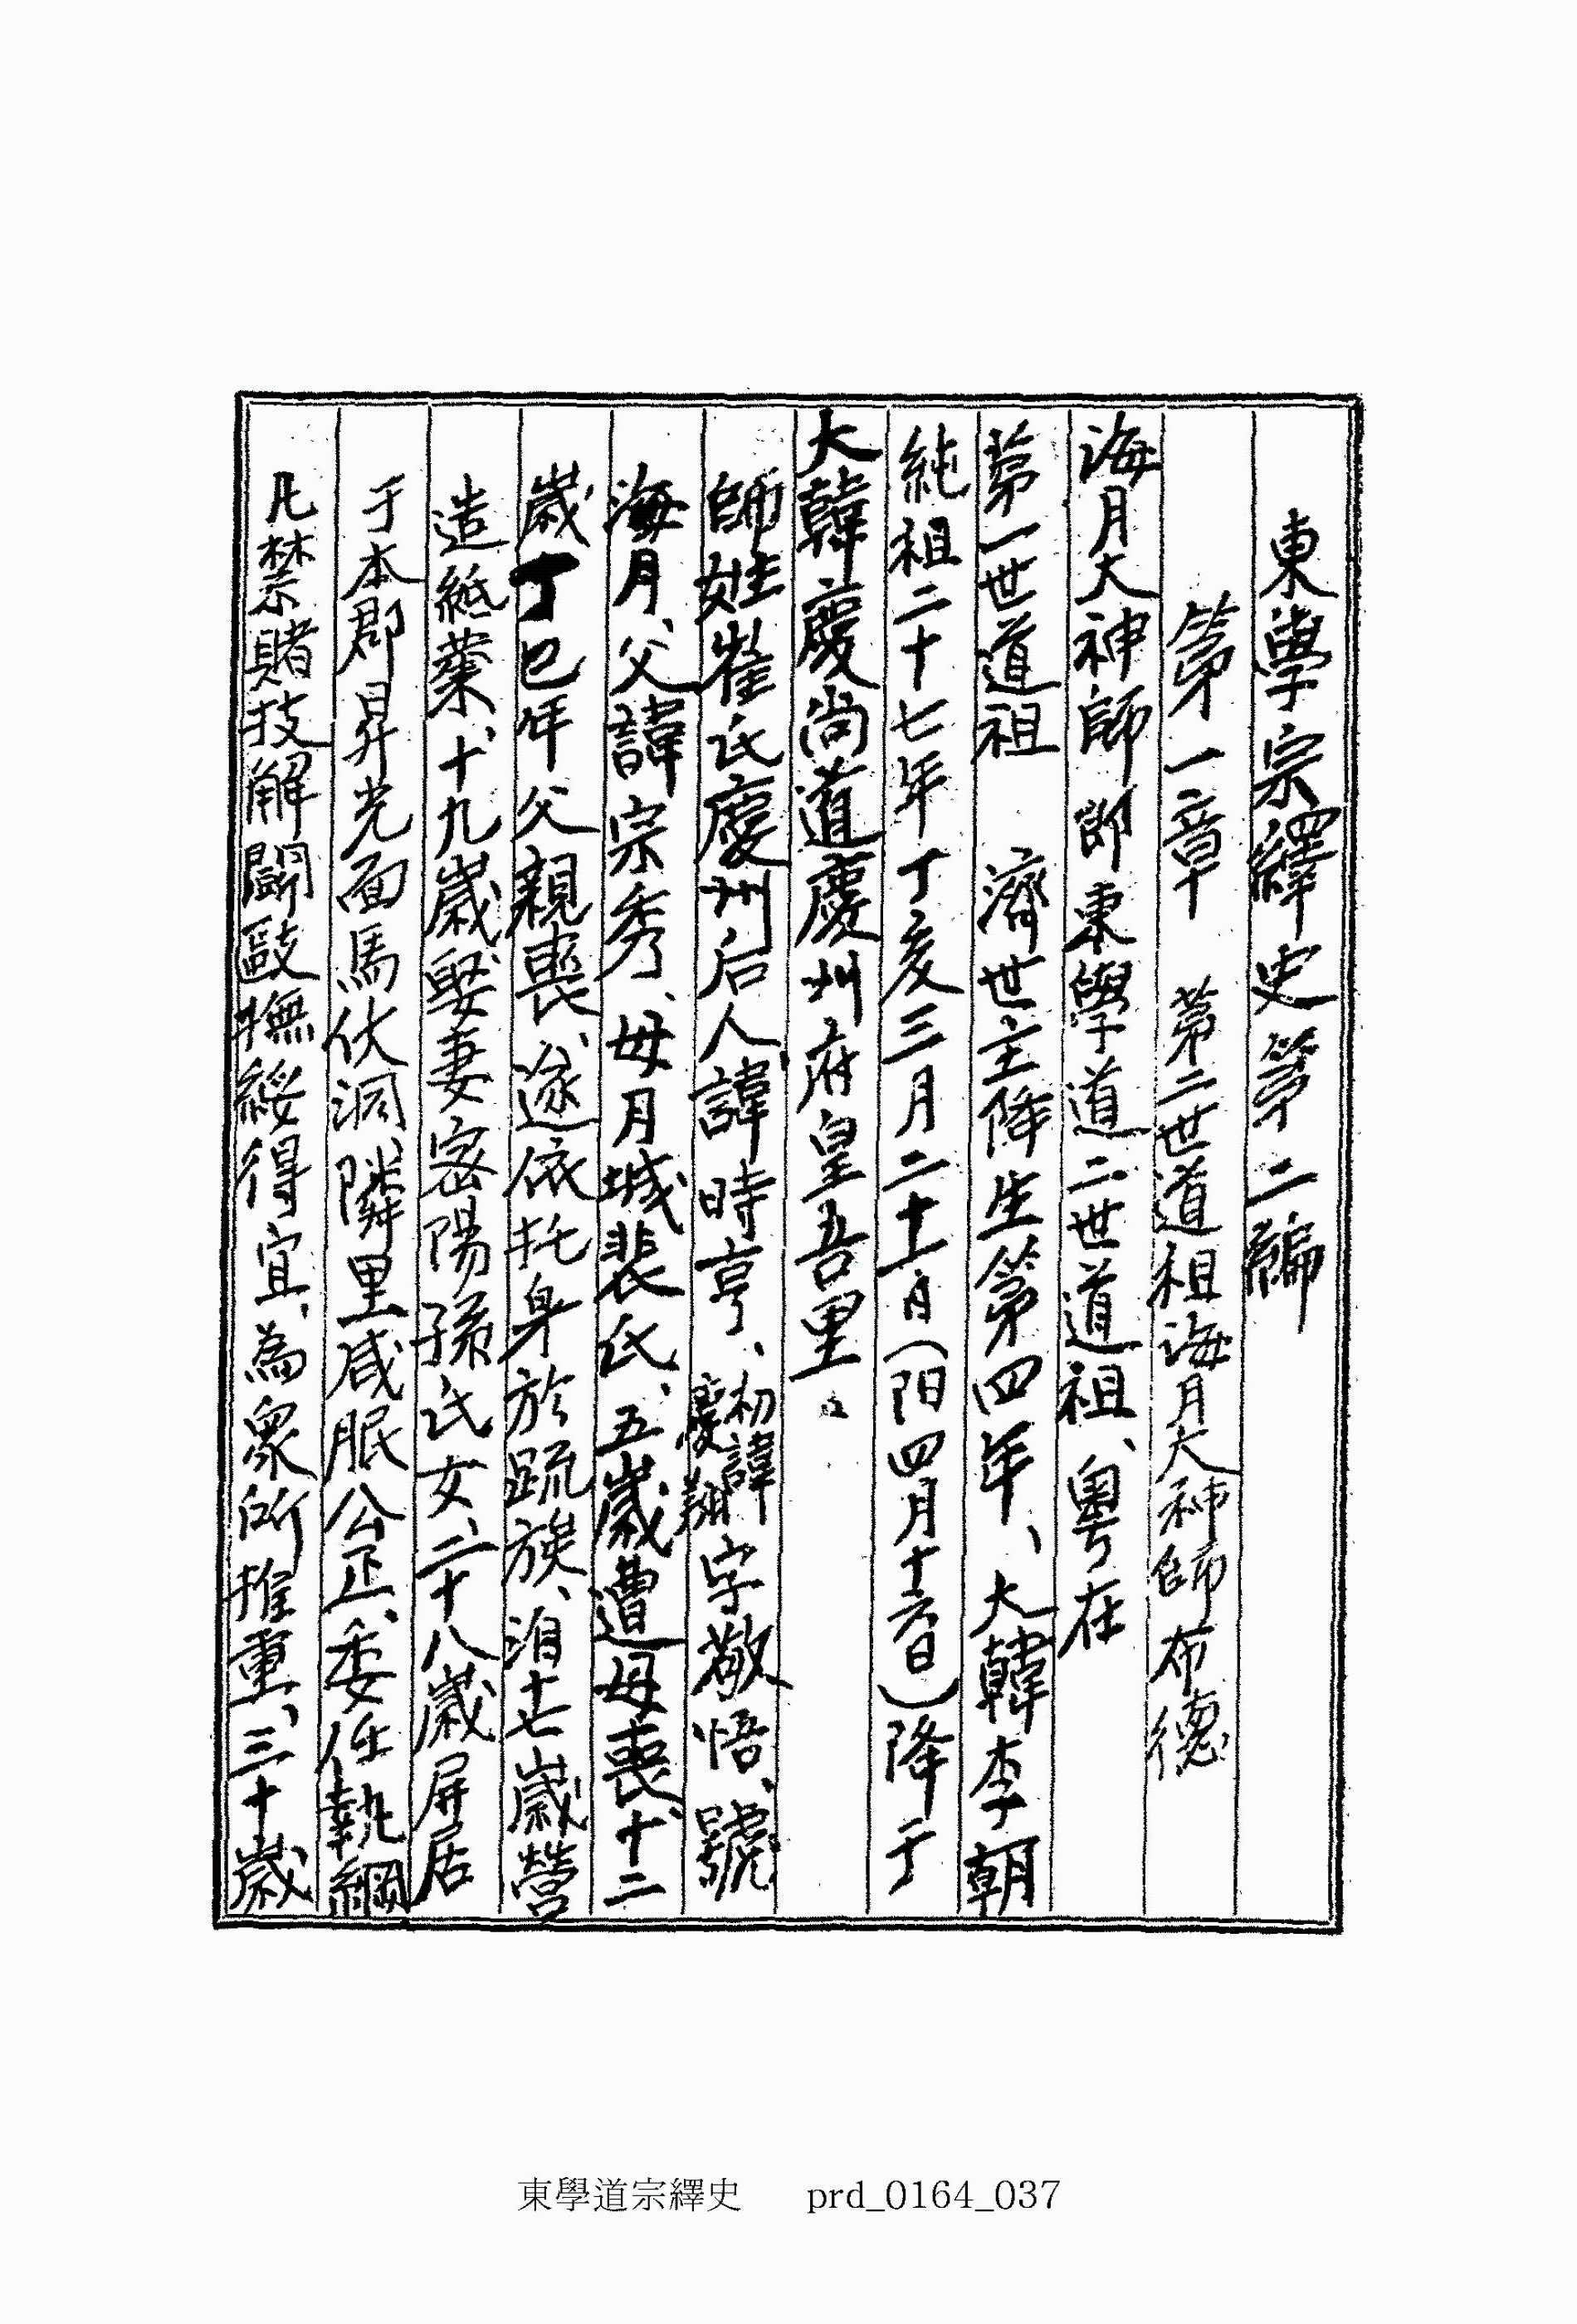 東學宗繹史第二編
第一章 第二世道祖海月大神師布德
海月大神師卽東學道二世道祖、粵在
第一世道祖 濟世主降生第四年、大韓李朝
純祖二十七年丁亥三月二十一日(阳四月十六日)降于
大韓慶尚道慶州府皇吾里。
師姓崔氏慶州后人諱時亨、初諱慶翔字敬悟、號
海月、父諱宗秀、母月城裴氏、五歲遭母喪、十二
歲丁巳年父親喪、遂依托身於疏族、洎十七歲營
造紙業、十九歲娶妻密陽孫氏女、二十八歲屏居
于本郡昇光面馬伏洞、隣里咸服公正、委任執綱
凡禁賭技解鬪毆撫綏得宜、為眾所推重、三十歲
東學道宗繹史 prd_0164_037